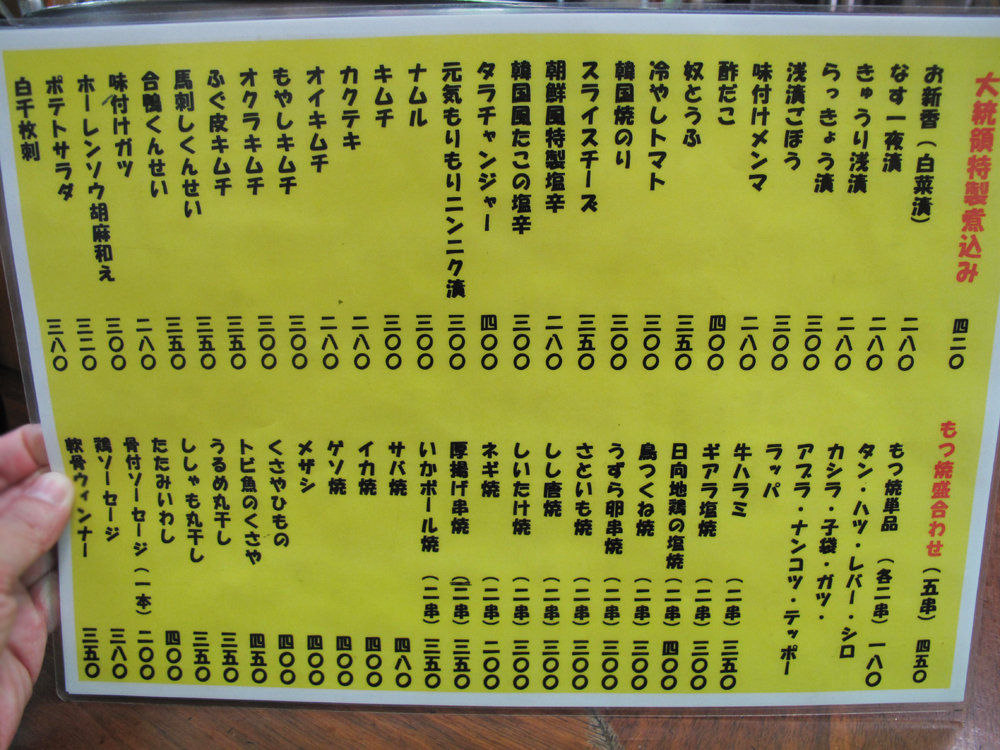 大統領特製煮込み 四二〇
お新香（白菜漬） 二八〇
なす一夜漬 二八〇
きゅうり浅漬 二八〇
らっきょう漬 三〇〇
浅漬ごぼう 三〇〇
味付けメンマ 二八〇
酢だこ 四〇〇
奴とうふ 三五〇
冷やしトマト 三〇〇
韓国焼のり 三〇〇
スライスチーズ 三五〇
朝鮮風特製塩辛 二八〇
韓国風たこの塩辛 三〇〇
タラチャンジャー 四〇〇
元気もりもりニンニク漬 三〇〇
ナムル 三〇〇
キムチ 三〇〇
カクテキ 二八〇
オイキムチ 二八〇
もやしキムチ 三〇〇
オクラキムチ 三〇〇
ふぐ皮キムチ 三五〇
馬刺しくんせい 三五〇
合鴨くんせい 三五〇
味付けガツ 二八〇
ホーレンソウ胡麻和え 三〇〇
ポテトサラダ 三二〇
白千枚刺 三八〇
もつ焼盛合わせ（五串） 四五〇
もつ焼単品（各二串） 一八〇
タン・ハツ・レバー・シロ
カシラ・子袋・ガツ・
アブラ・ナンコツ・テッポー
ラッパ
牛ハラミ（二串） 三五〇
ギアラ塩焼（二串） 三〇〇
日向地鶏の塩焼（二串） 四〇〇
鳥つくね焼（二串） 三〇〇
うずら卵串焼（二串） 三〇〇
さといも焼（二串） 三〇〇
しし唐焼（二串） 三〇〇
しいたけ焼（二串） 三〇〇
ネギ焼（二串） 二〇〇
厚揚げ串焼（二串） 三五〇
いかボール焼（二串） 三五〇
サバ焼 四八〇
イカ焼 四〇〇
ゲソ焼 四〇〇
メザシ 四〇〇
くさやひもの 四〇〇
トビ魚のくさや 四五〇
うるめ丸干し 三五〇
ししゃも丸干し 三五〇
たたみいわし 四〇〇
骨付ソーセージ（一本） 二〇〇
鶏ソーセージ 三八〇
軟骨ウィンナー 三五〇